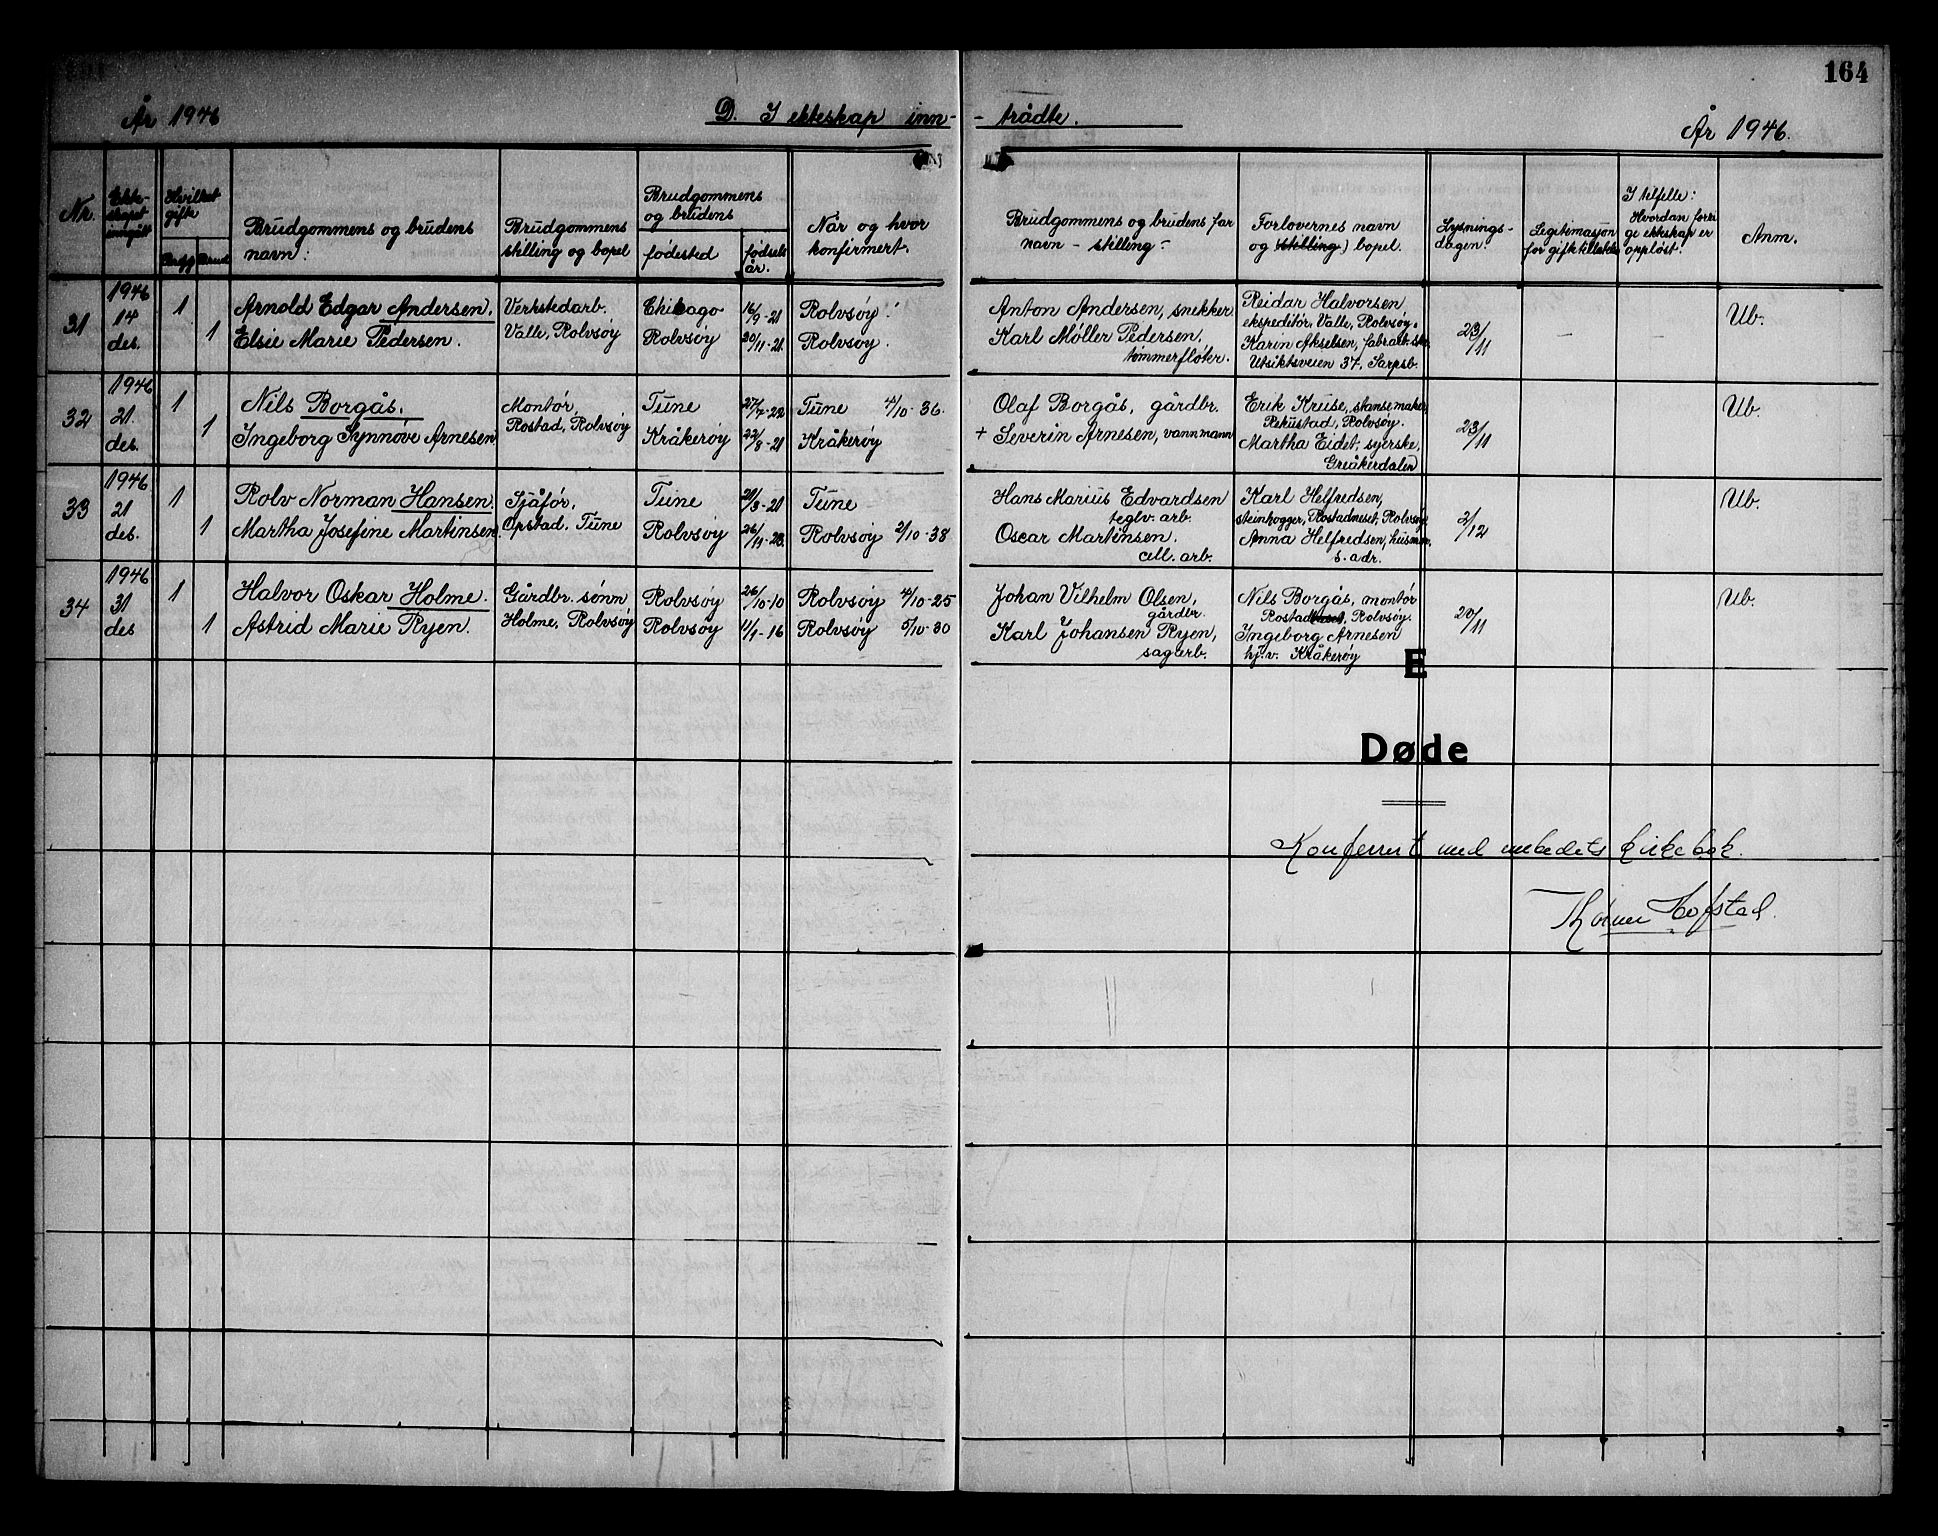 164
År 1946
D. I ekteskap inn-
- trådte.
År 1946.
Nr.
Ekte-
skapet
inngått
Hvilket
gifte
Brudg.
Brud
Brudgommens og brudens
navn:
Brudgommens
stilling og bopel
Brudgommens
og brudens
fødested
fødsels
år.
Når og hvor
konfirmert.
Brudgommens og brudens far
navn - stilling -
Forlovernes navn
og (stilling) bopel.
Lysnings-
dagen.
Legitimasjon
for gifte tillatelse
I tilfelle:
Hvordan forri
ge ekteskap er
oppløst.
Anm.
31
1946
14
des.
1
1
Arnold Edgar Andersen.
Elsie Marie Pedersen.
Verkstedarb.
Valle, Rolvsøy
Chicago
Rolvsøy
16/9-21
20/11-21
Rolvsøy.
Rolvsøy.
Anton Andersen, snekker
Karl Møller Pedersen,
tømmerfløter.
Reidar Halvorsen
ekspeditør, Valle, Rolvsøy.
Karin Akselsen, fabrikk
Utsiktsveien 37, Sarpsb.
23/11
-
Ub.
32
1946
21
des.
1
1
Nils Borgås.
Ingeborg Synnøve Arnesen
Montør,
Rostad, Rolvsøy
Tune
Kråkerøy
27/7-22
22/8-21
Tune 4/10-36.
Kråkerøy
Olaf Borgås, gårdbr.
+ Severin Arnesen, vannmann
Erik Kruse, stansemaker
Rekustad, Rolvsøy.
Martha Eidet, syerske,
Greåkerdalen
23/11
Ub.
33
1946
21
des.
1
1
Rolv Norman Hansen.
Martha Josefine Martinsen.
Sjåfør,
Opstad, Tune
Tune
Rolvsøy
21/3-21
26/11-23
Tune
Rolvsøy 2/10-38
Hans Marius Edvardsen
teglv. arb.
Oscar Martinsen.
cell. arb.
Karl Helfredsen,
steinhogger, Rostadneset, Rolvsøy
Anna Helfredsen, husmor,
s. adr.
2/12
Ub.
34
1946
31
des
1
1
Halvor Oskar Holme.
Astrid Marie Ryen.
Gårdbr. sønn
Holme, Rolvsøy
Rolvsøy
Rolvsøy
26/10-10
11/1-16
Rolvsøy 4/10-25
Rolvsøy 5/10-30
Johan Vilhelm Olsen,
gårdbr.
Karl Johansen Ryen,
sagarb.
Nils Borgås, montør
Rostadneset, Rolvsøy.
Ingeborg Arnesen
hj.v. Kråkerøy
20/11
Ub.
E
Døde
Konferert med embedets kirkebok.
Thorner Hofstad.